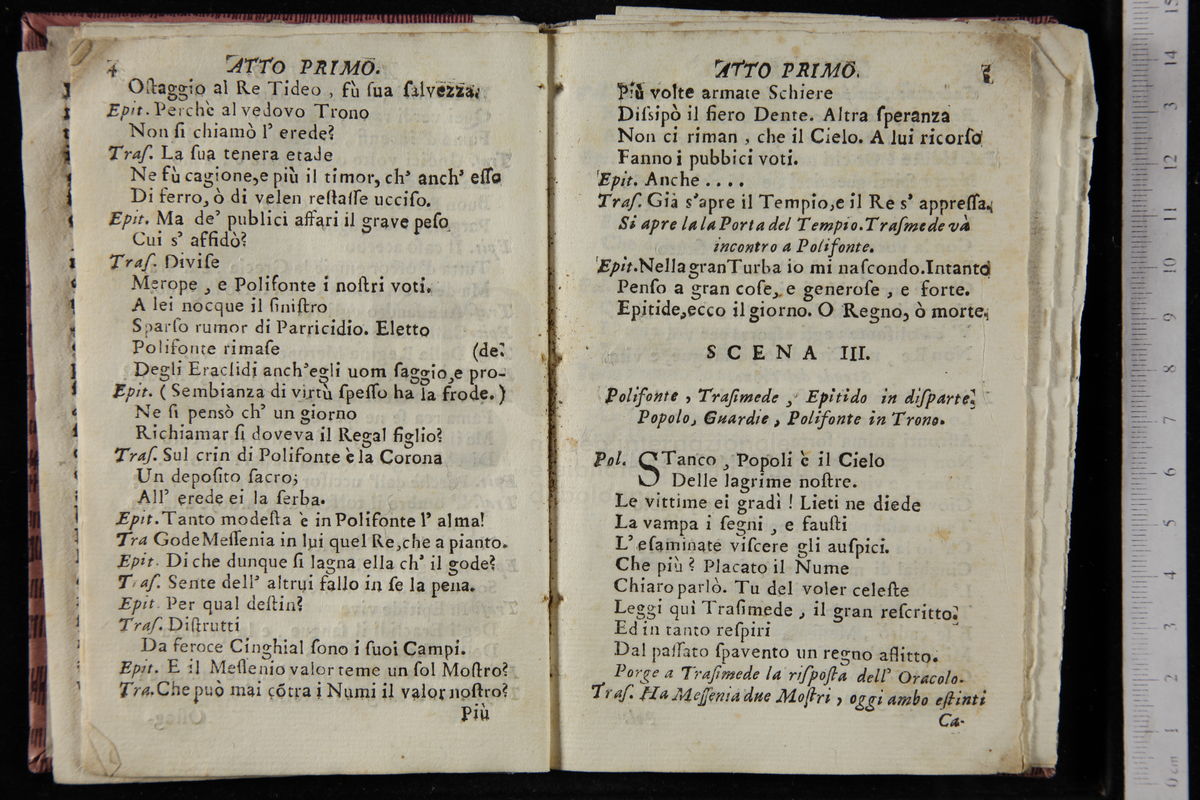 4 ATTO PRIMO.
Oſtaggio al Re Tideo , fù ſua ſalvezza.
Epit. Perchè al vedovo Trono
Non ſi chiamò l' erede?
Traſ. La ſua tenera etade
Ne fù cagione,e più il timor, ch' anch' eſſo
Di ferro, ò di velen reſtaſſe ucciſo.
Epit. Ma de' publici affari il grave peſo
Cui s' affidò?
Traſ. Diviſe
Merope , e Polifonte i noſtri voti.
A lei nocque il ſiniſtro
Sparſo rumor di Parricidio. Eletto
Polifonte rimaſe (de.
Degli Eraclidi anch'egli uom ſaggio,e pro-
Epit. ( Sembianza di virtù ſpeſſo ha la frode. )
Ne ſi pensò ch' un giorno
Richiamar ſi doveva il Regal figlio?
Traſ. Sul crin di Polifonte è la Corona
Un depoſito ſacro;
All' erede ei la ſerba.
Epit. Tanto modeſta è in Polifonte l' alma!
Tra Gode Meſſenia in lui quel Re,che a pianto.
Epit. Di che dunque ſi lagna ella ch' il gode?
Traſ. Sente dell' altrui fallo in ſe la pena.
Epit. Per qual deſtin?
Traſ. Diſtrutti
Da feroce Cinghial ſono i ſuoi Campi.
Epit. E il Meſſenio valor teme un ſol Moſtro?
Tra. Che può mai cõtra i Numi il valor noſtro?
Più
ATTO PRIMO.
Più volte armate Schiere
Diſsipò il fiero Dente. Altra ſperanza
Non ci riman , che il Cielo. A lui ricorſo
Fanno i pubbici voti.
Epit. Anche . . . .
Traſ. Già s'apre il Tempio,e il Re s' appreſſa.
Si apre la la Porta del Tempio. Traſmede và
incontro a Polifonte.
Epit. Nella gran Turba io mi naſcondo. Intanto
Penſo a gran coſe, e generoſe , e forte.
Epitide,ecco il giorno. O Regno, ò morte.
SCENA III.
Polifonte , Traſimede , Epitido in diſparte.
Popolo, Guardie , Polifonte in Trono.
Pol. STanco , Popoli è il Cielo
Delle lagrime noſtre.
Le vittime ei gradì ! Lieti ne diede
La vampa i ſegni , e fauſti
L' eſaminate viſcere gli auſpici.
Che più ? Placato il Nume
Chiaro parlò. Tu del voler celeſte
Leggi qui Traſimede , il gran reſcritto.
Ed in tanto reſpiri
Dal paſſato ſpavento un regno aflitto.
Porge a Traſimede la riſpoſta dell' Oracolo.
Traſ. Ha Meſſenia due Moſtri , oggi ambo eſtinti
Ca-
0 cm 1 2 3 4 5 6 7 8 9 10 11 12 13 14 15